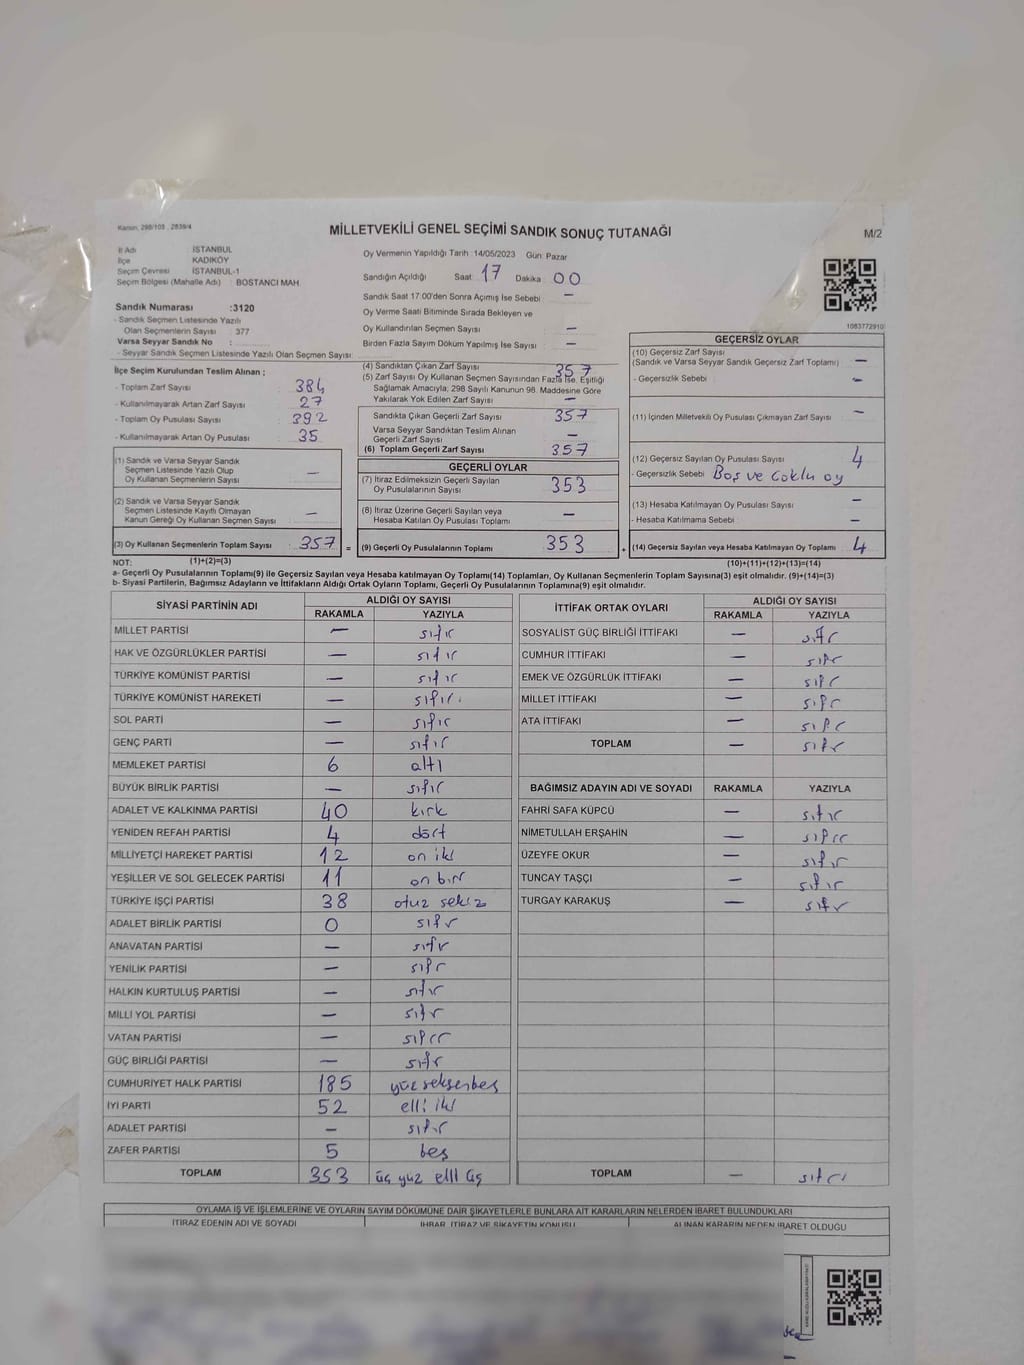 Kanun, 298/103 , 2839/4
MİLLETVEKİLİ GENEL SEÇİMİ SANDIK SONUÇ TUTANAĞI
M/2
İl Adı İSTANBUL
İlçe KADIKÖY
Seçim Çevresi İSTANBUL-1
Seçim Bölgesi (Mahalle Adı) : BOSTANCI MAH.
Oy Vermenin Yapıldığı Tarih :14/05/2023 Gün: Pazar
Sandığın Açıldığı Saat: 17 Dakika 00
Sandık Saat 17:00'den Sonra Açımış İse Sebebi : —
Oy Verme Saati Bitiminde Sırada Bekleyen ve
Oy Kullandırılan Seçmen Sayısı : —
Birden Fazla Sayım Döküm Yapılmış İse Sayısı : —
1083772910
Sandık Numarası :3120
- Sandık Seçmen Listesinde Yazılı
Olan Seçmenlerin Sayısı : 377
Varsa Seyyar Sandık No :
- Seyyar Sandık Seçmen Listesinde Yazılı Olan Seçmen Sayısı:
İlçe Seçim Kurulundan Teslim Alınan ;
- Toplam Zarf Sayısı : 384
- Kullanılmayarak Artan Zarf Sayısı : 27
- Toplam Oy Pusulası Sayısı : 392
- Kullanılmayarak Artan Oy Pusulası : 35
(1) Sandık ve Varsa Seyyar Sandık
Seçmen Listesinde Yazılı Olup
Oy Kullanan Seçmenlerin Sayısı : —
(2) Sandık ve Varsa Seyyar Sandık
Seçmen Listesinde Kayıtlı Olmayan
Kanun Gereği Oy Kullanan Seçmen Sayısı : —
(3) Oy Kullanan Seçmenlerin Toplam Sayısı : 357 =
(4) Sandıktan Çıkan Zarf Sayısı : 357
(5) Zarf Sayısı Oy Kullanan Seçmen Sayısından Fazla İse, Eşitliği
Sağlamak Amacıyla; 298 Sayılı Kanunun 98. Maddesine Göre
Yakılarak Yok Edilen Zarf Sayısı : —
Sandıkta Çıkan Geçerli Zarf Sayısı : 357
Varsa Seyyar Sandıktan Teslim Alınan
Geçerli Zarf Sayısı : —
(6) Toplam Geçerli Zarf Sayısı : 357
GEÇERLİ OYLAR
(7) İtiraz Edilmeksizin Geçerli Sayılan
Oy Pusulalarının Sayısı : 353
(8) İtiraz Üzerine Geçerli Sayılan veya
Hesaba Katılan Oy Pusulası Toplamı : —
(9) Geçerli Oy Pusulalarının Toplamı : 353 +
GEÇERSİZ OYLAR
(10) Geçersiz Zarf Sayısı
(Sandık ve Varsa Seyyar Sandık Geçersiz Zarf Toplamı) : —
- Geçersizlik Sebebi : —
(11) İçinden Milletvekili Oy Pusulası Çıkmayan Zarf Sayısı : —
(12) Geçersiz Sayılan Oy Pusulası Sayısı : 4
- Geçersizlik Sebebi : Boş ve çoklu oy
(13) Hesaba Katılmayan Oy Pusulası Sayısı : —
- Hesaba Katılmama Sebebi : —
(14) Geçersiz Sayılan veya Hesaba Katılmayan Oy Toplamı : 4
NOT: (1)+(2)=(3) (10)+(11)+(12)+(13)=(14)
a- Geçerli Oy Pusulasının Toplamı(9) ile Geçersiz Sayılan veya Hesaba katılmayan Oy Toplamı(14) Toplamları, Oy Kullanan Seçmenlerin Toplam Sayısına(3) eşit olmalıdır. (9)+(14)=(3)
b- Siyasi Partilerin, Bağımsız Adayların ve İttifakların Aldığı Ortak Oyların Toplamı, Geçerli Oy Pusulalarının Toplamına(9) eşit olmalıdır.
SİYASİ PARTİNİN ADI ALDIĞI OY SAYISI
RAKAMLA YAZIYLA
MİLLET PARTİSİ — sıfır
HAK VE ÖZGÜRLÜKLER PARTİSİ — sıfır
TÜRKİYE KOMÜNİST PARTİSİ — sıfır
TÜRKİYE KOMÜNİST HAREKETİ — sıfır
SOL PARTİ — sıfır
GENÇ PARTİ — sıfır
MEMLEKET PARTİSİ 6 altı
BÜYÜK BİRLİK PARTİSİ — sıfır
ADALET VE KALKINMA PARTİSİ 40 kırk
YENİDEN REFAH PARTİSİ 4 dört
MİLLİYETÇİ HAREKET PARTİSİ 12 on iki
YEŞİLLER VE SOL GELECEK PARTİSİ 11 on bir
TÜRKİYE İŞÇİ PARTİSİ 38 otuz sekiz
ADALET BİRLİK PARTİSİ 0 sıfır
ANAVATAN PARTİSİ — sıfır
YENİLİK PARTİSİ — sıfır
HALKIN KURTULUŞ PARTİSİ — sıfır
MİLLİ YOL PARTİSİ — sıfır
VATAN PARTİSİ — sıfır
GÜÇ BİRLİĞİ PARTİSİ — sıfır
CUMHURİYET HALK PARTİSİ 185 yüz seksenbeş
İYİ PARTİ 52 elli iki
ADALET PARTİSİ — sıfır
ZAFER PARTİSİ 5 beş
TOPLAM 353 üç yüz elli üç
İTTİFAK ORTAK OYLARI ALDIĞI OY SAYISI
RAKAMLA YAZIYLA
SOSYALİST GÜÇ BİRLİĞİ İTTİFAKI — sıfır
CUMHUR İTTİFAKI — sıfır
EMEK VE ÖZGÜRLÜK İTTİFAKI — sıfır
MİLLET İTTİFAKI — sıfır
ATA İTTİFAKI — sıfır
TOPLAM — sıfır
BAĞIMSIZ ADAYIN ADI VE SOYADI RAKAMLA YAZIYLA
FAHRİ SAFA KÜPCÜ — sıfır
NİMETULLAH ERŞAHİN — sıfır
ÜZEYFE OKUR — sıfır
TUNCAY TAŞÇI — sıfır
TURGAY KARAKUŞ — sıfır
TOPLAM — sıfır
OYLAMA İŞ VE İŞLEMLERİNE VE OYLARIN SAYIM DÖKÜMÜNE DAİR ŞİKAYETLERLE BUNLARA AİT KARARLARIN NELERDEN İBARET BULUNDUKLARI
İTİRAZ EDENİN ADI VE SOYADI İHBAR, İTİRAZ VE ŞİKAYETİN KONUSU ALINAN KARARIN NEDEN İBARET OLDUĞU